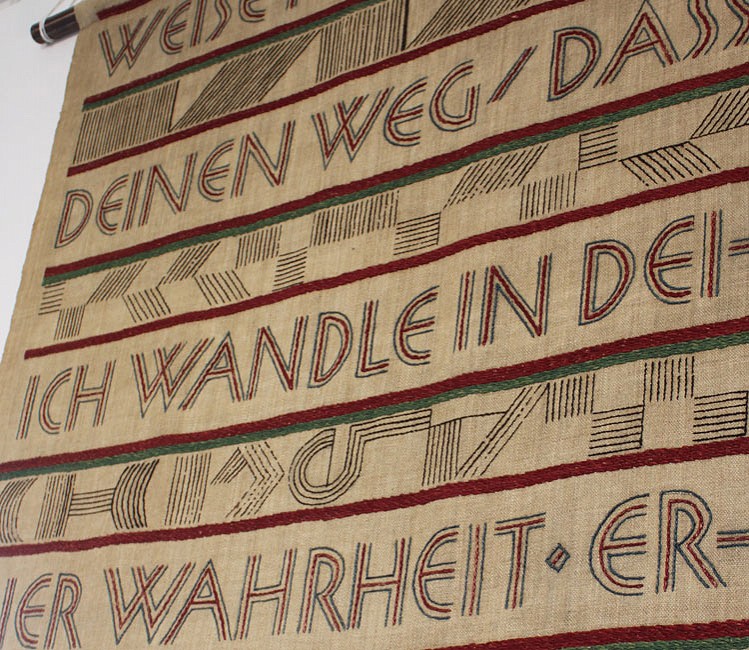 WEISE
DEINEN WEG / DASS
ICH WANDLE IN DEI-
NER WAHRHEIT · ER-